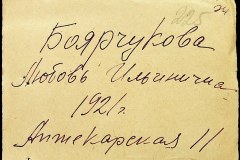 225 24
Боярчукова
Любовь Ильинична
1921г.
Аптекарская 11